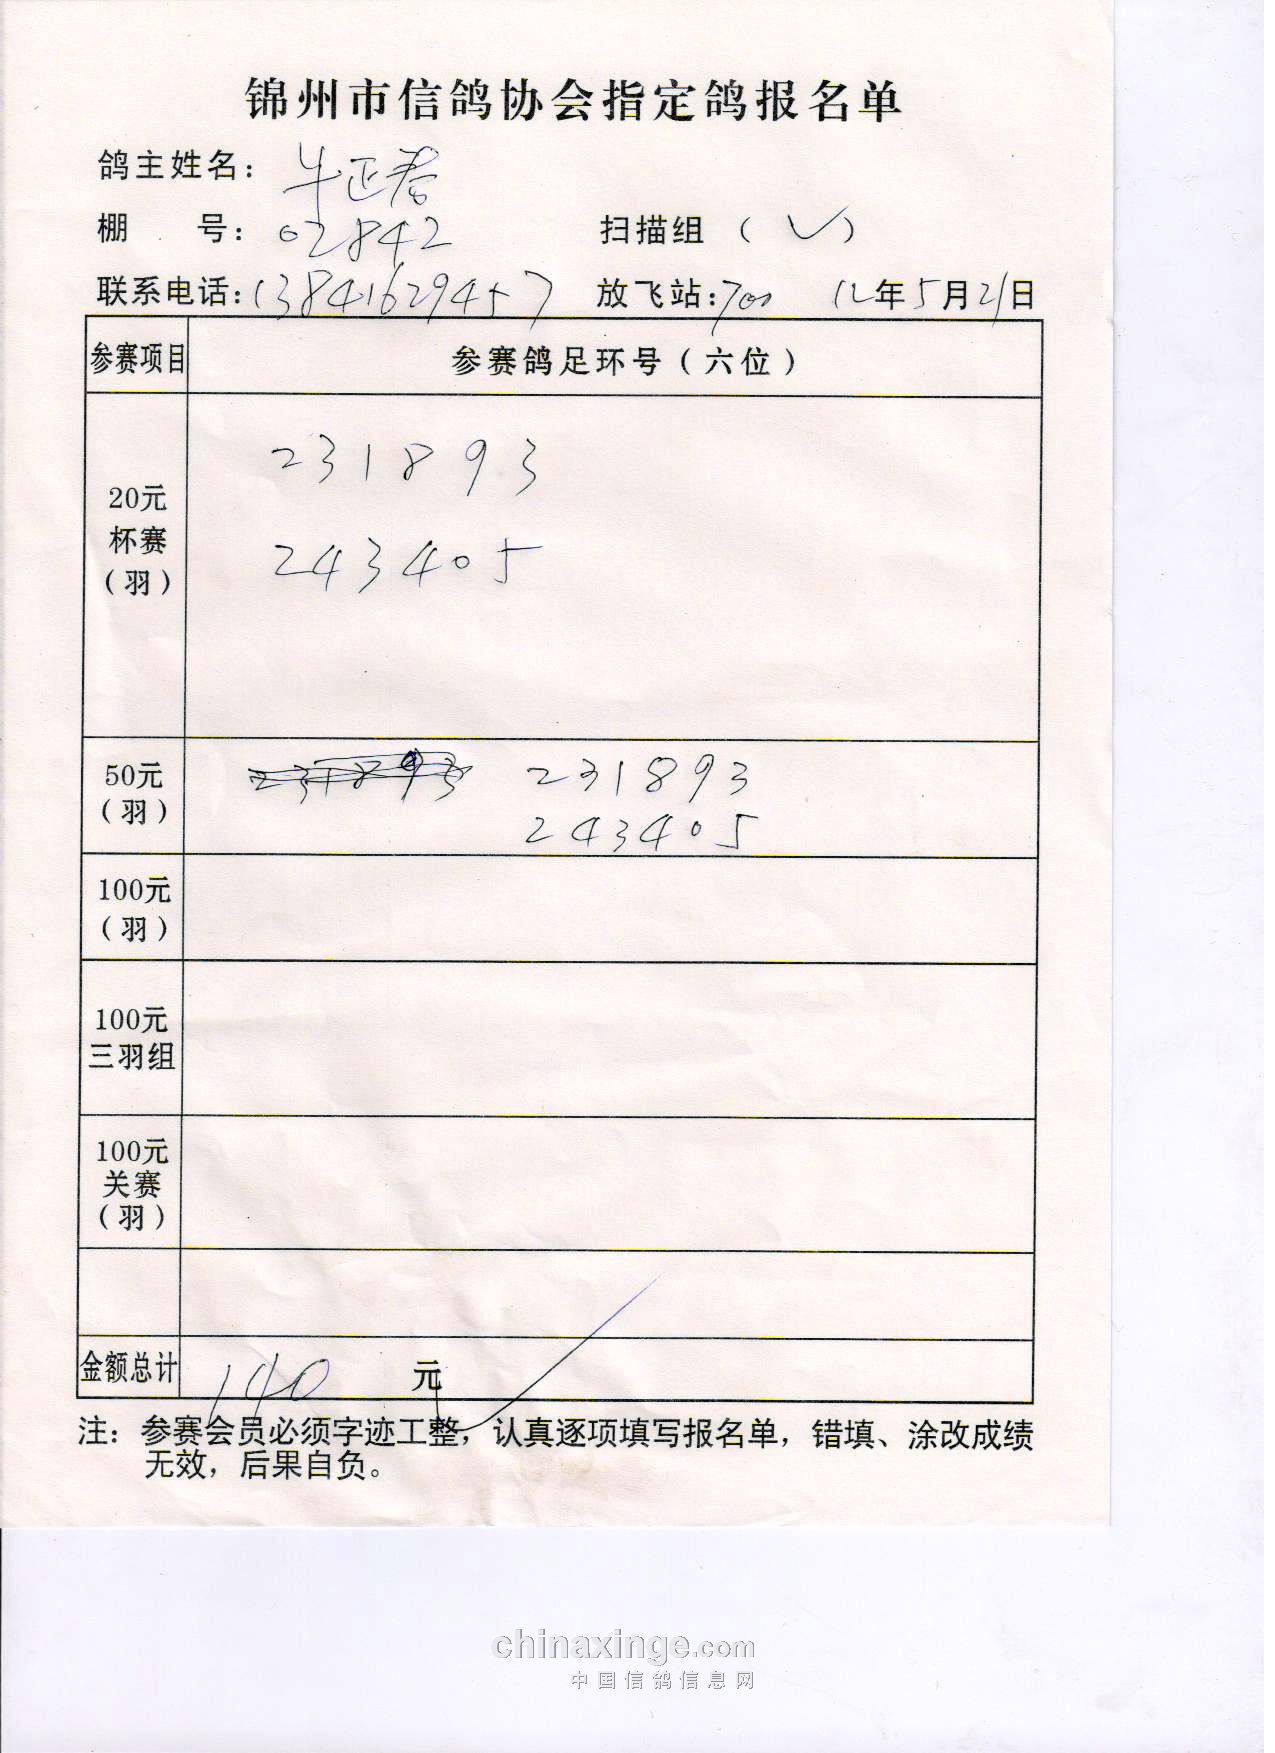 锦州市信鸽协会指定鸽报名单
鸽主姓名: 牛正春
棚 号: 02842 扫描组 (✓)
联系电话: 13841629457 放飞站: 700 12年5月21日
参赛项目 参赛鸽足环号(六位)
20元
杯赛
(羽)
231893
243405
50元
(羽)
231893 231893
243405
100元
(羽)
100元
三羽组
100元
关赛
(羽)
金额总计 140 元
注: 参赛会员必须字迹工整, 认真逐项填写报名单, 错填、涂改成绩
无效, 后果自负。
chinaxinge.com
中国信鸽信息网